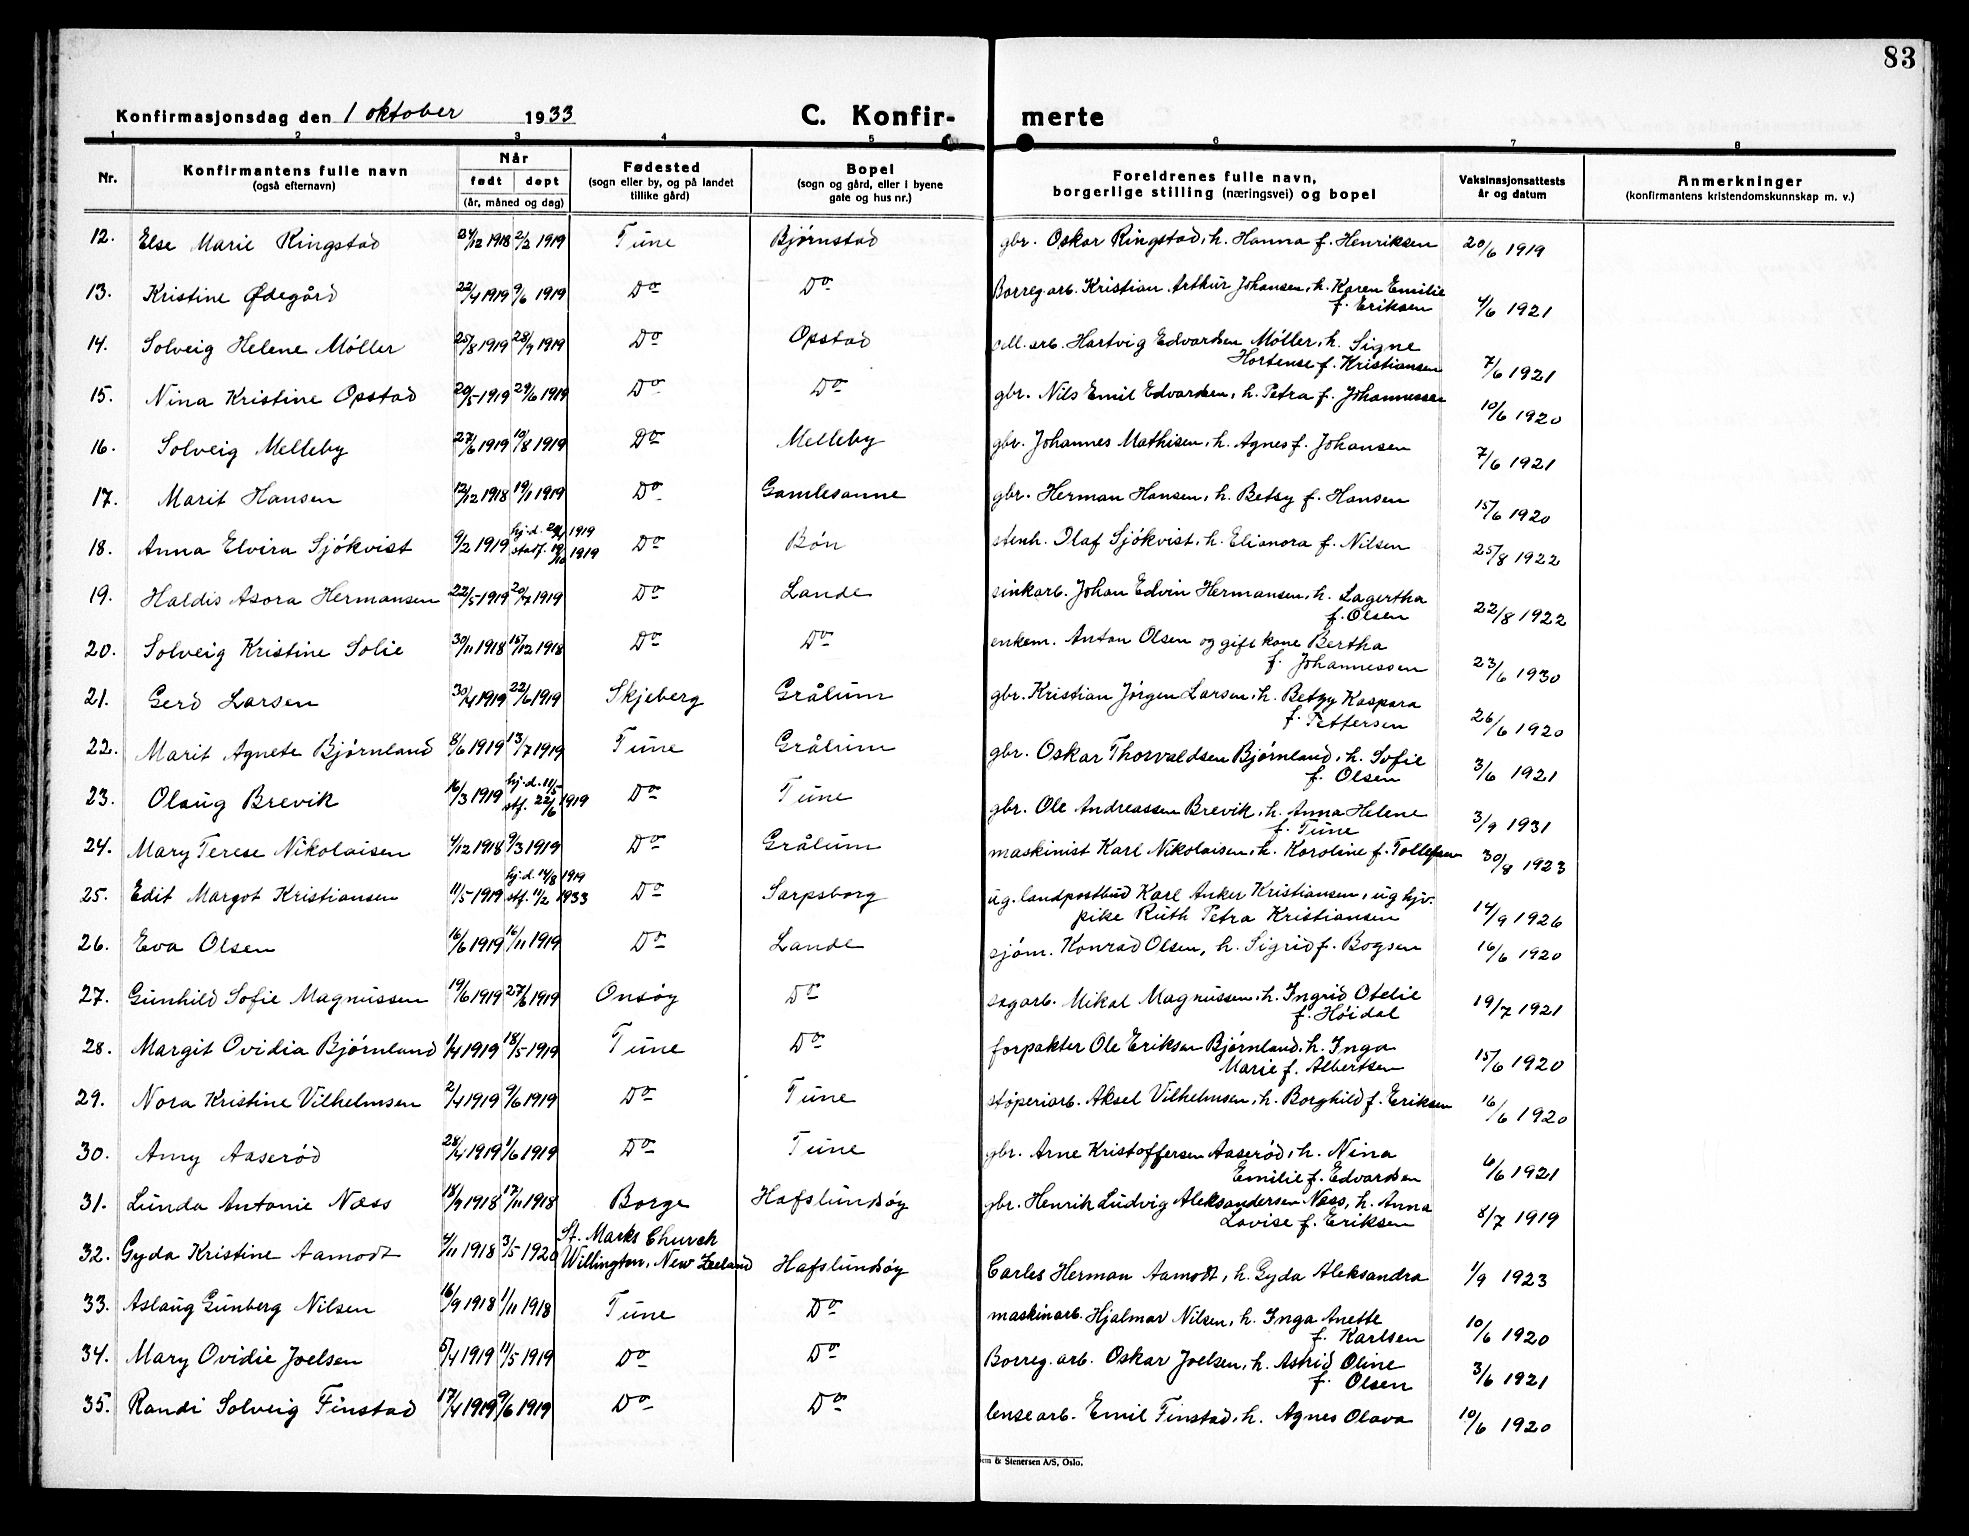 83
Konfirmasjonsdag den 1 oktober 1933 C. Konfir- merte
1 2 3 4 5 6 7 8
Nr. Konfirmantens fulle navn (også efternavn) Når født døpt (år, måned og dag) Fødested (sogn eller by, og på landet tillike gård) Bopel (sogn og gård, eller i byene gate og hus nr.) Foreldrenes fulle navn, borgerlige stilling (næringsvei) og bopel Vaksinasjonsattests år og datum Anmerkninger (konfirmantens kristendomskunnskap m. v.)
12. Else Marie Ringstad 1918 2/2 1919 Tune Bjørnstad gbr. Oskar Ringstad, h. Hanna f. Henriksen 20/6 1919
13. Kristine Ødegård 22/4 1919 9/6 1919 Do Do Borreg.arb. Kristian Arthur Johansen, h. Karen Emilie
f. Eriksen 4/6 1921
14. Solveig Helene Møller 25/8 1919 28/9 1919 Do Opstad arb. Hartvig Edvardsen Møller, h. Signe
Hortense f. Kristiansen 7/6 1921
15. Nina Kristine Opstad 20/5 1919 29/6 1919 Do Do gbr. Nils Emil Edvardsen, h. Petra f. Johannessen 10/6 1920
16. Solveig Melleby 27/6 1919 10/8 1919 Do Melleby gbr. Johannes Mathisen, h. Agnes f. Johansen 7/6 1921
17. Marit Hansen 12/12 1918 19/1 1919 Do Gamlesanne gbr. Herman Hansen, h. Betsy f. Hansen 15/6 1920
18. Anna Elvira Sjökvist 9/2 1919 hj.d. 1919
stadf. 19/10 1919 Do Bøn stenh. Olaf Sjökvist, h. Elianora f. Nilsen 25/8 1922
19. Haldis Asora Hermansen 22/5 1919 20/7 1919 Do Lande sinkarb. Johan Edvin Hermansen, h. Lagertha
f. Olsen 22/8 1922
20. Solveig Kristine Solie 30/11 1918 15/12 1918 Do Do enkem. Anton Olsen og gift kone Bertha
f. Johannessen 23/6 1930
21. Gerd Larsen 30/4 1919 22/6 1919 Skjeberg Grålum gbr. Kristian Jørgen Larsen, h. Betzy Kaspara
f. Pettersen 26/6 1920
22. Marit Agnete Bjørnland 8/6 1919 13/7 1919 Tune Grålum gbr. Oskar Thorvaldsen Bjørnland, h. Sofie
f. Olsen 3/6 1921
23. Olaug Brevik 16/3 1919 hj.d. 11/5
stf. 22/6 1919 Do Tune gbr. Ole Andreassen Brevik, h. Anna Helene
f. Tune 3/9 1931
24. Mary Terese Nikolaisen 4/12 1918 9/3 1919 Do Grålum maskinist Karl Nikolaisen, h. Karoline f. Tollefsen 30/8 1923
25. Edit Margot Kristiansen 11/5 1919 hj.d. 14/8 1919
stf. 11/2 1933 Do Sarpsborg ug. landpostbud Karl Anker Kristiansen, ug hjv.
pike Ruth Petra Kristiansen 14/9 1926
26. Eva Olsen 16/6 1919 16/11 1919 Do Lande sjøm. Konrad Olsen, h. Sigrid f. Bogsen 16/6 1920
27. Gunhild Sofie Magnussen 19/6 1919 27/6 1919 Onsøy Do sagarb. Mikal Magnussen, h. Ingrid Otelie
f. Høidal 19/7 1921
28. Margit Ovidia Bjørnland 1/4 1919 18/5 1919 Tune Do forpakter Ole Eriksen Bjørnland, h. Inga
Marie f. Albertsen 15/6 1920
29. Nora Kristine Vilhelmsen 2/4 1919 9/6 1919 Do Tune støperiarb. Aksel Vilhelmsen, h. Borghild f. Eriksen 16/6 1920
30. Amy Aaserød 28/4 1919 1/6 1919 Do Tune gbr. Arne Kristoffersen Aaserød, h. Nina
Emilie f. Edvardsen 6/6 1921
31. Lunda Antonie Næss 18/9 1918 17/11 1918 Borge Hafslundsøy gbr. Henrik Ludvig Aleksandersen Næss, h. Anna
Lovise f. Eriksen 8/7 1919
32. Gyda Kristine Aamodt 4/11 1918 3/5 1920 St. Marks Church
Willington, New Zeeland Hafslundsøy Carles Herman Aamodt, h. Gyda Aleksandra 1/9 1923
33. Aslaug Gunberg Nilsen 16/9 1918 1/11 1918 Tune Do maskinarb. Hjalmar Nilsen, h. Inga Anette
f. Karlsen 10/6 1920
34. Mary Ovidie Joelsen 5/4 1919 11/5 1919 Do Do Borreg. arb. Oskar Joelsen, h. Astrid Oline
f. Olsen 3/6 1921
35. Randi Solveig Finstad 17/4 1919 9/6 1919 Do Do lensearb. Emil Finstad, h. Agnes Olava 10/6 1920
& Stenersen A/S, Oslo.